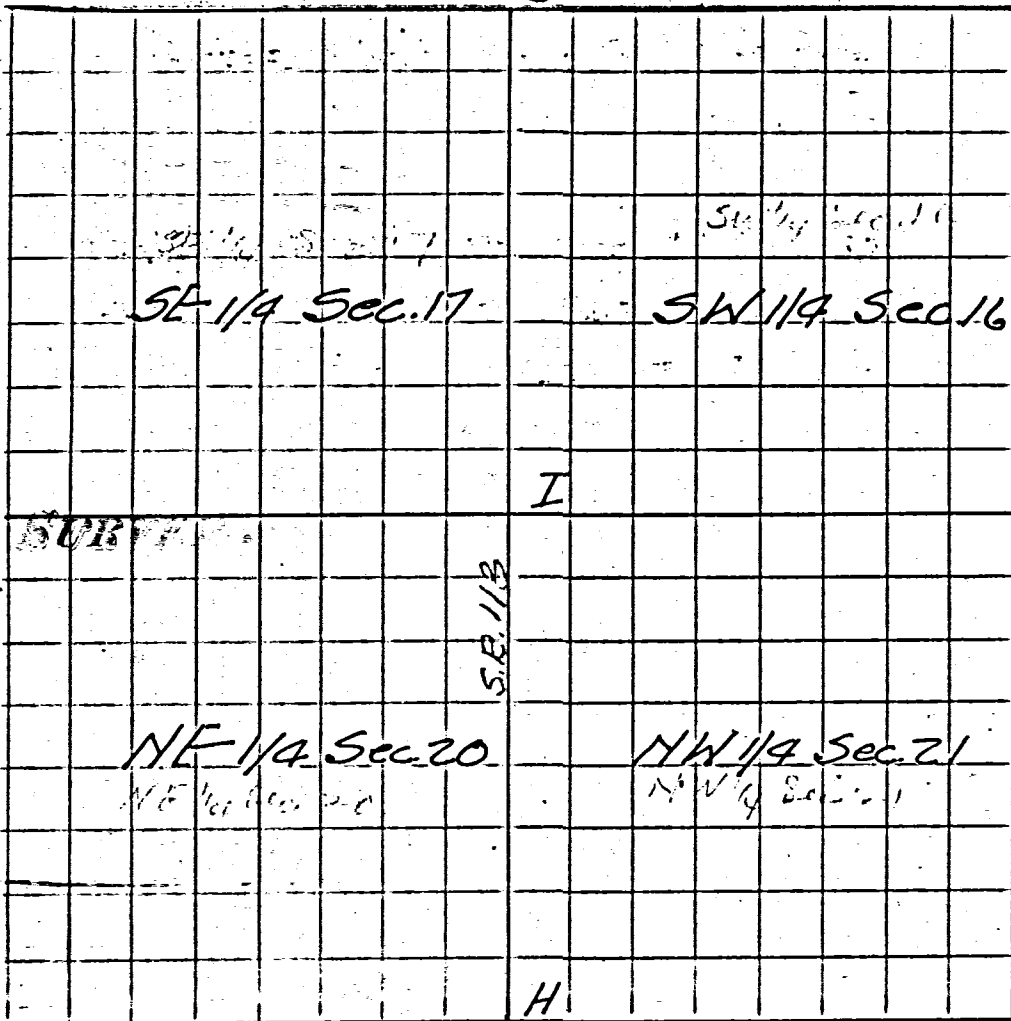 SE 1/4 Sec. 17
SW 1/4 Sec. 16
I
S.R. 113
NE 1/4 Sec. 20
NW 1/4 Sec. 21
NW 1/4
H